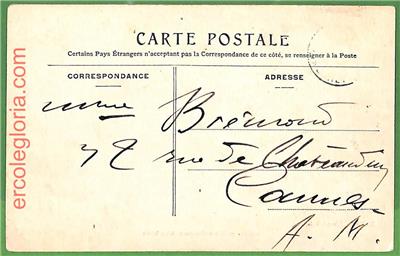 CARTE POSTALE
Certains Pays Étrangers n'acceptant pas la Correspondance de ce côté, se renseigner à la Poste
CORRESPONDANCE
ADRESSE
Mme Brémond
rue de Châteaudun
Cannes
A. M.
ercolegloria.com